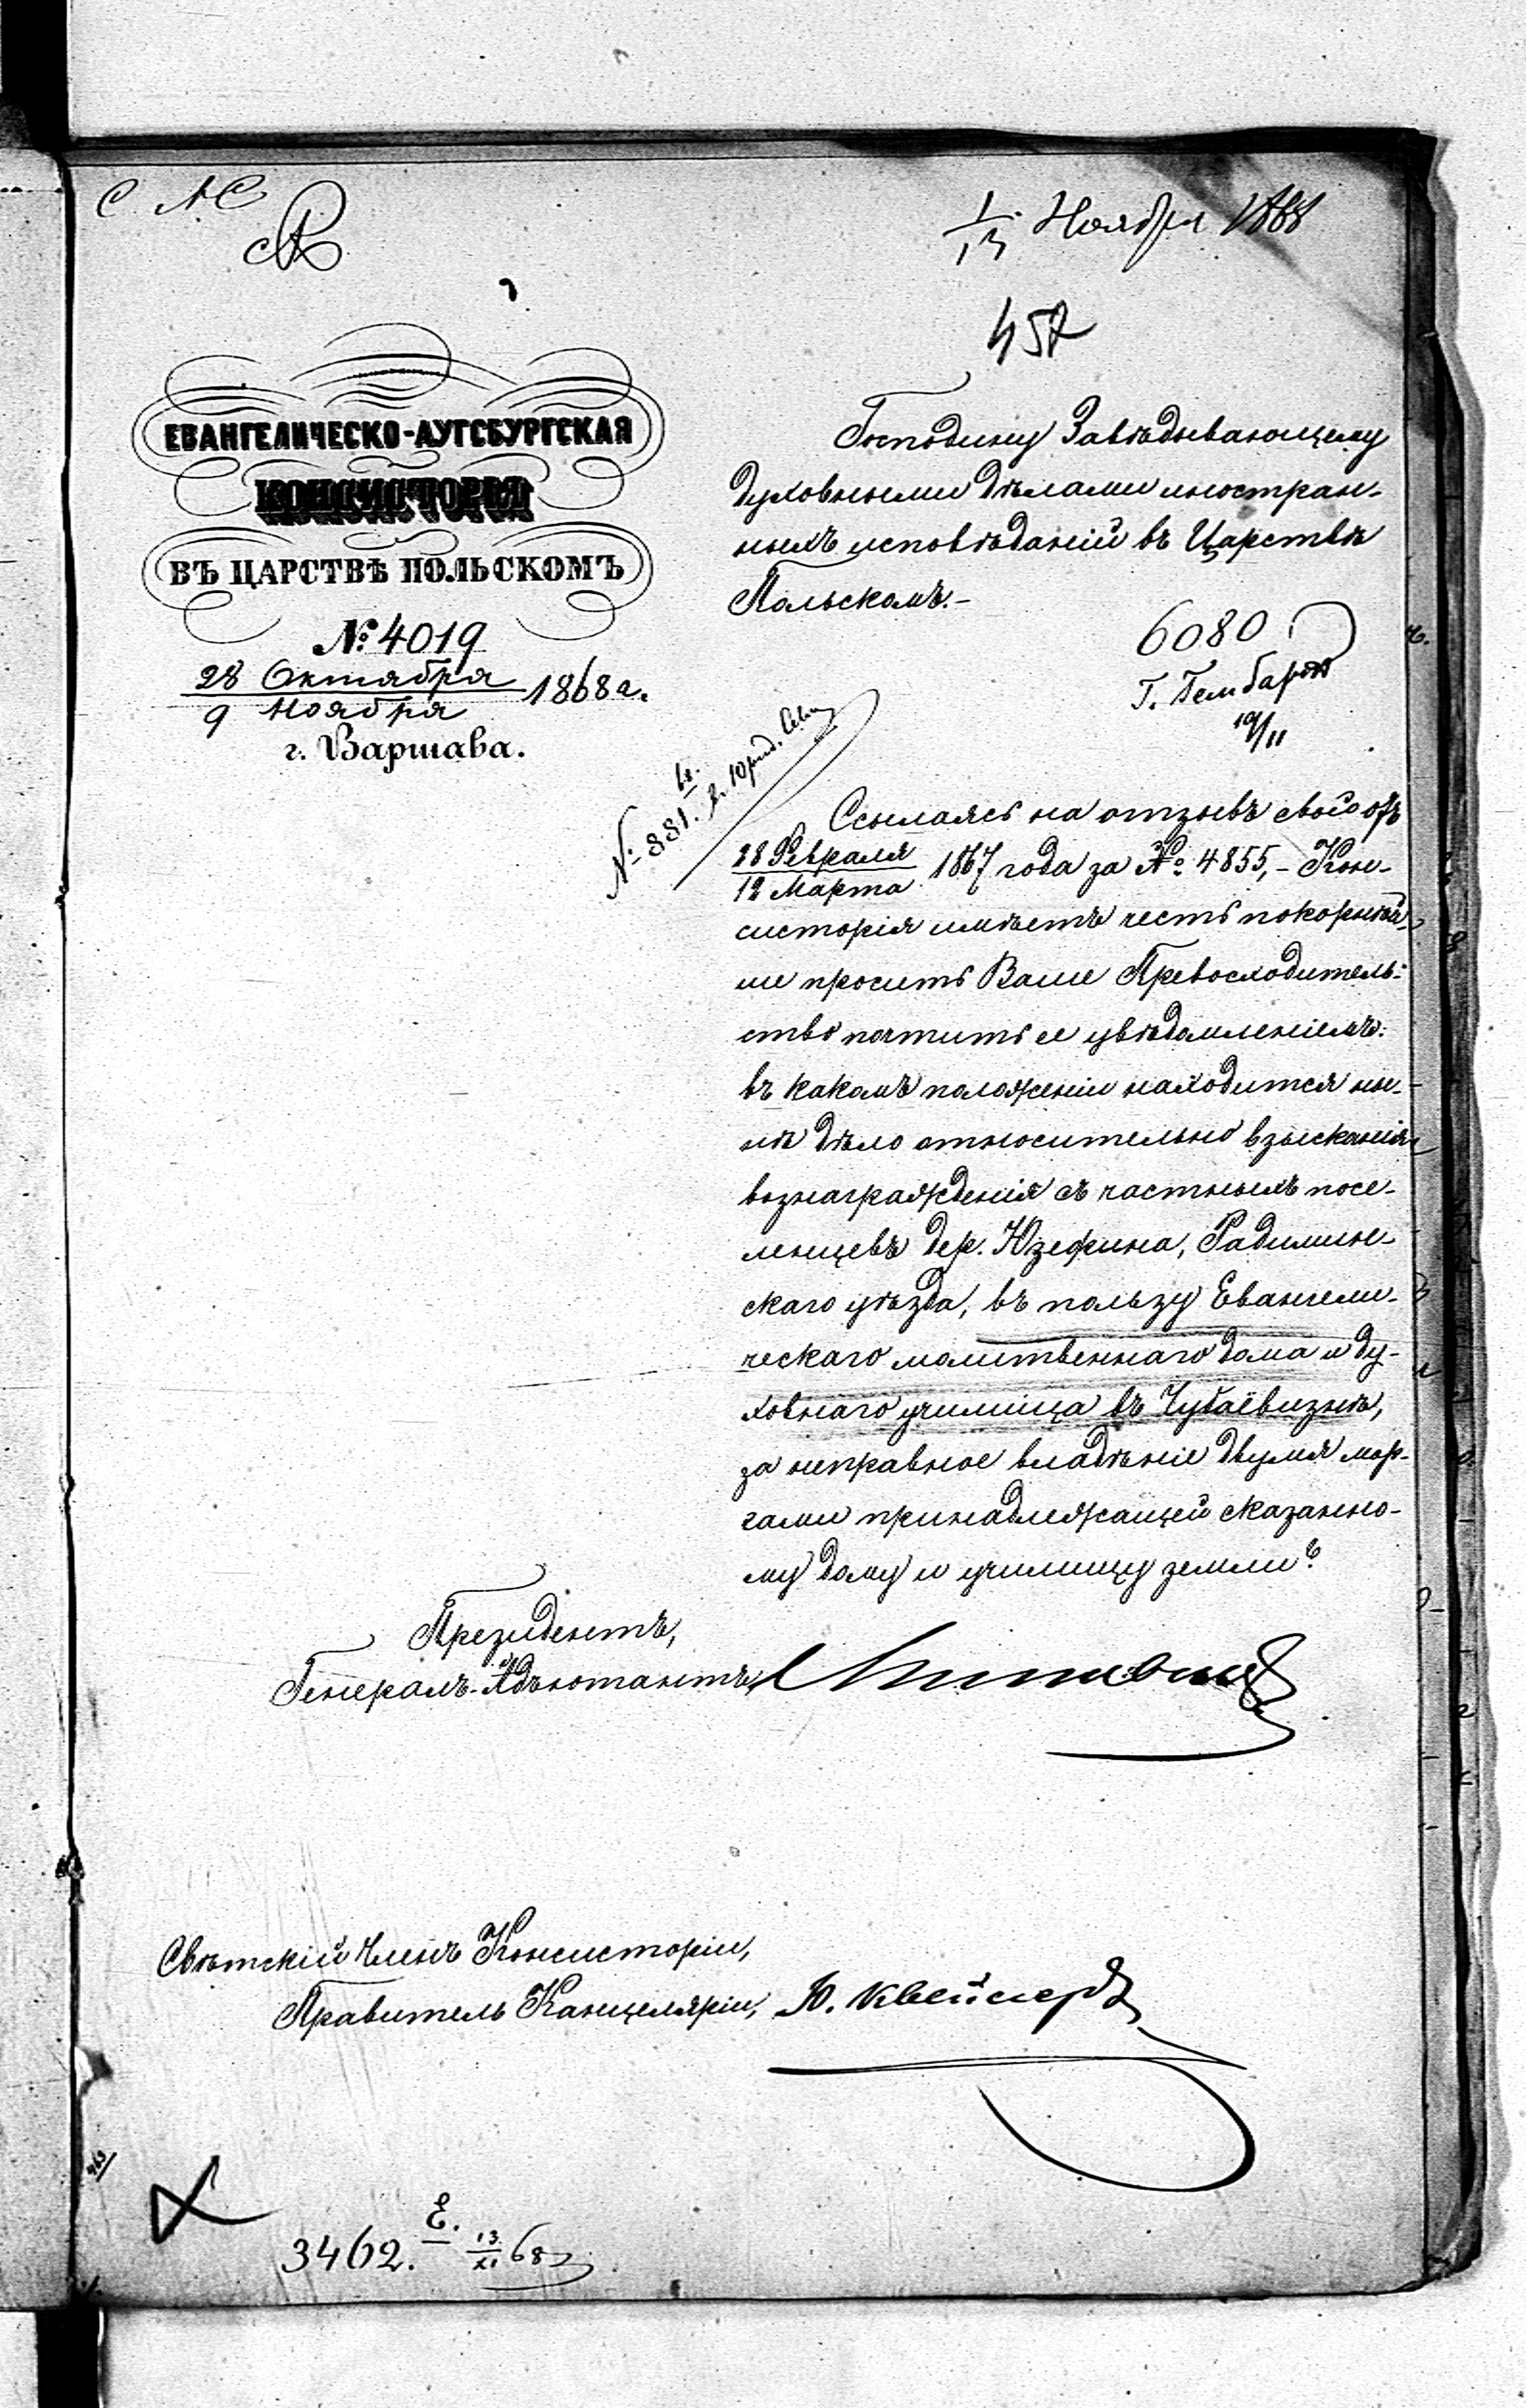 С АС
1/13 Ноября 1868
457
ЕВАНГЕЛИЧЕСКО-АУГСБУРГСКАЯ
КОНСИСТОРІЯ
ВЪ ЦАРСТВѢ ПОЛЬСКОМЪ
№ 4019
28 Октября
9 Ноября 1868 г.
г. Варшава.
Господину Завѣдывающему
духовными дѣлами иностран-
ныхъ исповѣданій въ Царствѣ
Польскомъ.-
6080
Г.
10/11
№ 881.
Ссылаясь на отзывъ свой отъ
28 Февраля
12 Марта 1867 года за № 4855,- Кон-
систорія имѣетъ честь покорнѣй-
ше просить Ваше Превосходитель-
ство почтить ее увѣдомленіемъ:
въ какомъ положеніи находится ны-
нѣ дѣло относительно взысканія
вознагражденія съ частныхъ посе-
ленцевъ дер. Юзефина, Радимин-
скаго уѣзда, въ пользу Евангели-
ческаго молитвеннаго дома и ду-
ховнаго училища въ Чубаевизнѣ,
за неправное владѣніе двумя мор-
гами принадлежащей сказанно-
му дому и училищу земли?
Президентъ,
Генералъ-Адъютантъ,
Свѣтскій Членъ Консисторіи,
Правитель Канцеляріи, Ю. Квейсеръ
463
3462. Е. 13/XI 68